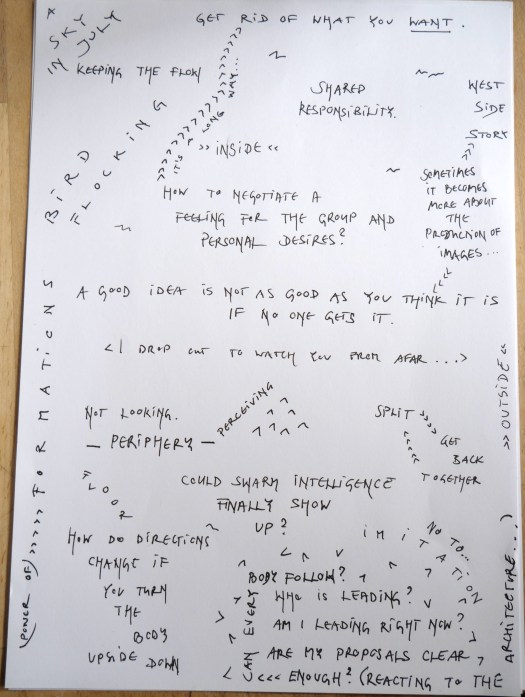 x
IN SKY
JULY
GET RID OF WHAT YOU WANT.
KEEPING THE FLOW
>>>>>>>>>>>>>>>>>>
IT'S A LONG WAY...
~
SHARED
RESPONSIBILITY.
~~
WEST
SIDE
STORY
>>
SOMETIMES
IT BECOMES
MORE ABOUT
THE
PRODUCTION OF
IMAGES...
<<<
BIRD
FLOCKING
>> INSIDE <<
~
HOW TO NEGOTIATE A
FEELING FOR THE GROUP AND
PERSONAL DESIRES?
~
A GOOD IDEA IS NOT AS GOOD AS YOU THINK IT IS
IF NO ONE GETS IT.
<I DROP OUT TO WATCH YOU FROM AFAR...>
(POWER OF) >>>>> FORMATIONS
NOT LOOKING.
— PERIPHERY —
PERCEIVING
^ ^ ^ ^ ^ ^ ^
SPLIT >>>>
GET
BACK
TOGETHER
<<<<
>> OUTSIDE <<
FLOOR
COULD SWARM INTELLIGENCE
FINALLY SHOW
UP?
HOW DO DIRECTIONS
CHANGE IF
YOU TURN
THE
BODY
UPSIDE DOWN
~
NO TO...
IMITATION
CAN EVERY
BODY FOLLOW?
WHO IS LEADING?
AM I LEADING RIGHT NOW?
ARE MY PROPOSALS CLEAR
<<< ENOUGH? (REACTING TO THE
ARCHITECTURE...)